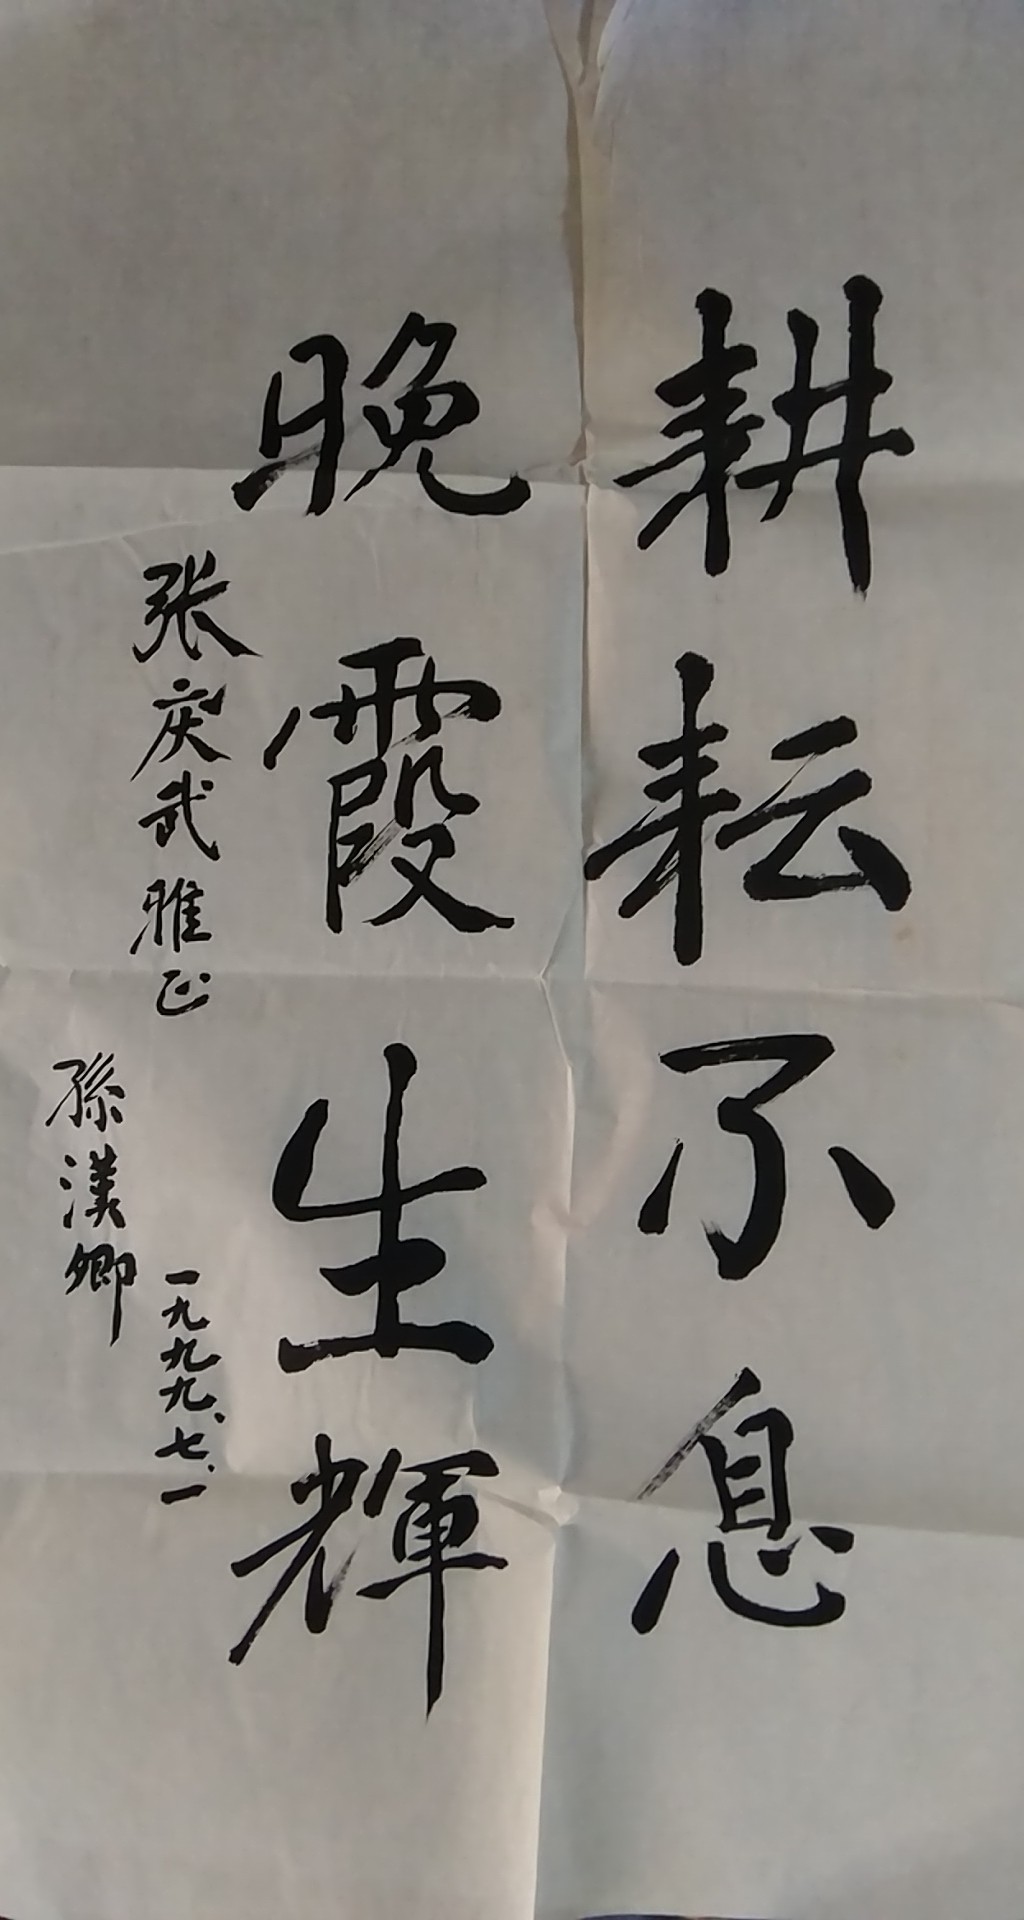 耕耘不息
晚霞生輝
张庆武雅正
孫漢卿
一九九九、七、一